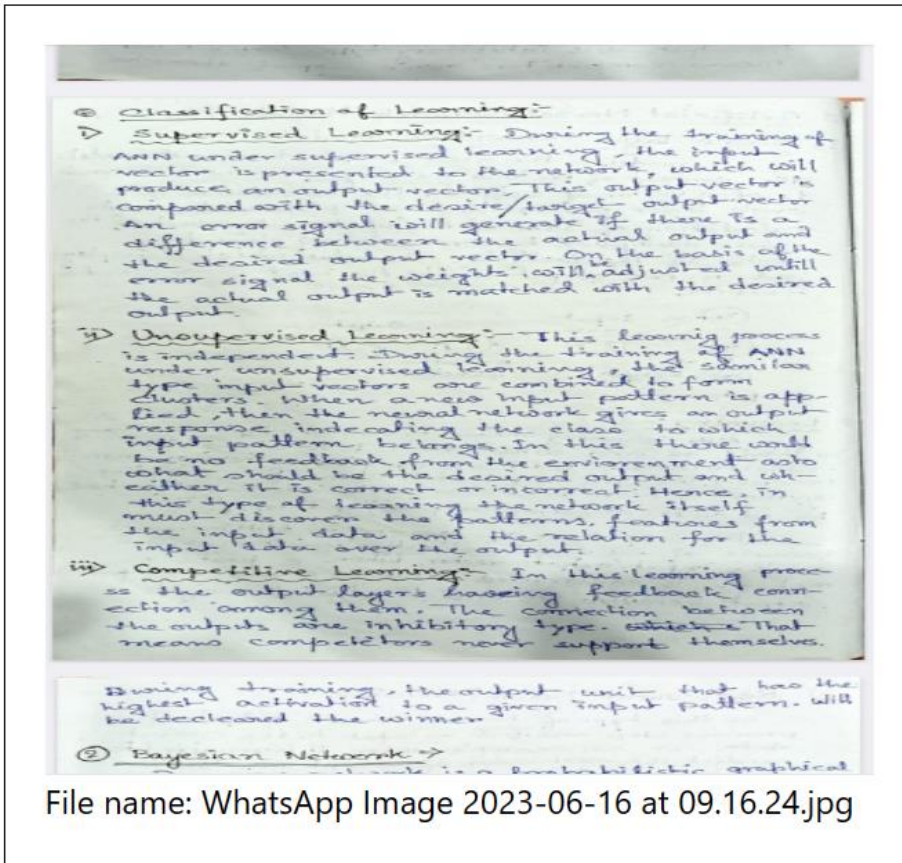 Classification of Learning:-
i) Supervised Learning:- During the training of
ANN under supervised learning, the input
vector is presented to the network, which will
produce an output vector. This output vector is
compared with the desire/target output vector
An error signal will generate if there is a
difference between the actual output and
the desired output vector. On the basis of the
error signal the weights will be adjusted untill
the actual output is matched with the desired
output.
ii) Unsupervised Learning:- This learnig process
is independent. During the training of ANN
under unsupervised learning, the similar
type input vectors are combined to form
clusters. When a new input pattern is app-
lied, then the neural network gives an output
response indecating the class to which
input pattern belongs. In this there would
be no feedback from the enviorenment as to
what should be the desired output and wh-
eather it is correct or incorrect. Hence, in
this type of learning the network itself
must discover the patterns, features from
the input data and the relation for the
input data over the output.
iii) Competitive Learning:- In this learning proce-
ss the output layers haveing feedback conn-
ection among them. The connection between
the outputs are inhibitory type. That
means competetors never support themselves.
During training, the output unit that has the
highest activation to a given input pattern. Will
be decleared the winner
② Bayesian Network ->
network is a Probabilistic graphical
File name: WhatsApp Image 2023-06-16 at 09.16.24.jpg